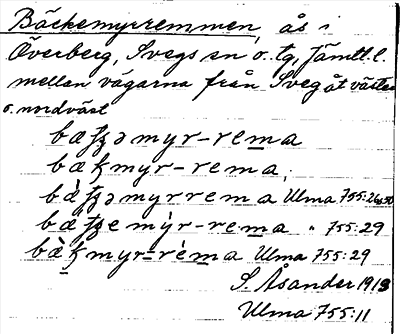 Bäckemyrremmen, ås i
Överberg, Svegs sn o. tg, Jämtl. l.
mellan vägarna från Sveg åt väster
o. nordväst
bæʈʂəmyr-rema
bækmyr-rema,
bæ̀ʈʂəmyrrema Ulma 755:26
bæ̀ʈʂemỳr-rema " 755:29
bæ̀kmyr=rèma Ulma 755:29
S. Åsander 1913
Ulma 755:11